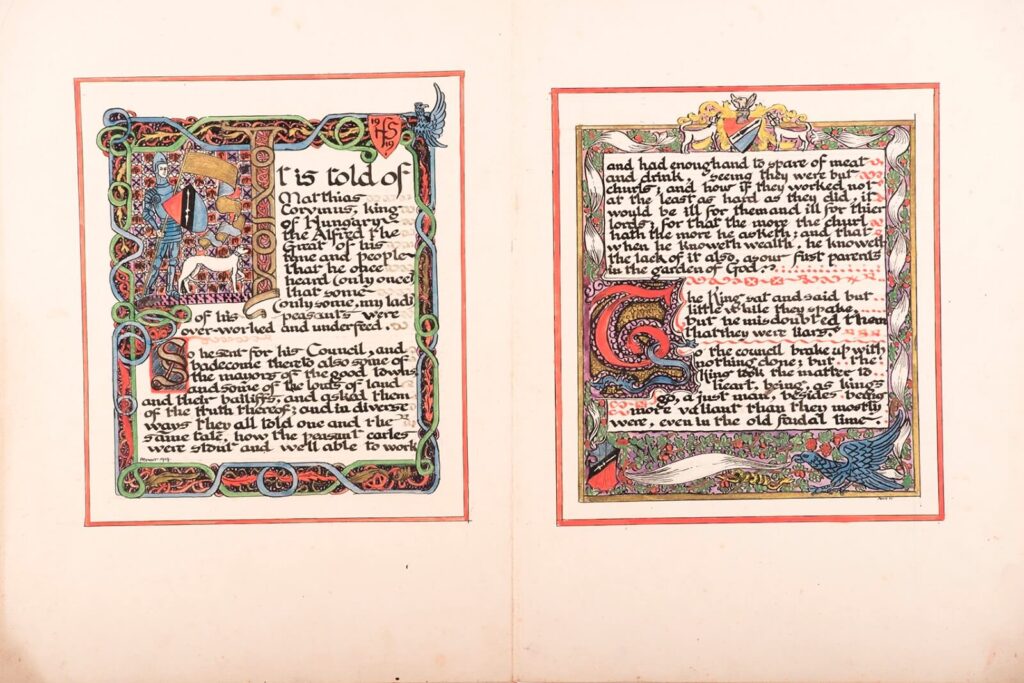 19 HS 19
It is told of
Matthias
Corvinus, king
of Hungary
the Alfred the
Great of his
time and people
that he once
heard (only once)
that some
(only some, my lad)
of his peasants were
over-worked and underfeed.
So he sent for his Council, and
badecome thereto also some of
the mayors of the good towns
and some of the louts of land
and their bailiffs, and asked them
of the truth thereof; and in diverse
ways they all told one and the
same tale, how the peasant carles
were stout and well able to work
1919
and had enoughand to spare of meat
and drink, seeing they were but
churls; and how if they worked not
at the least as hard as they did, it
would be ill for themand ill for thier
lords; for that the more the churl
hath the more he asketh; and that
when he knoweth wealth, he knoweth
the lack of it also, as our first parents
in the garden of God.
The King sat and said but
little while they spake,
but he misdoubted them
that they were liars.
So the council brake up with
nothing done; but the
King took the matter to
heart, being, as kings
go, a just man, besides being
more valiant than they mostly
were, even in the old feudal time.